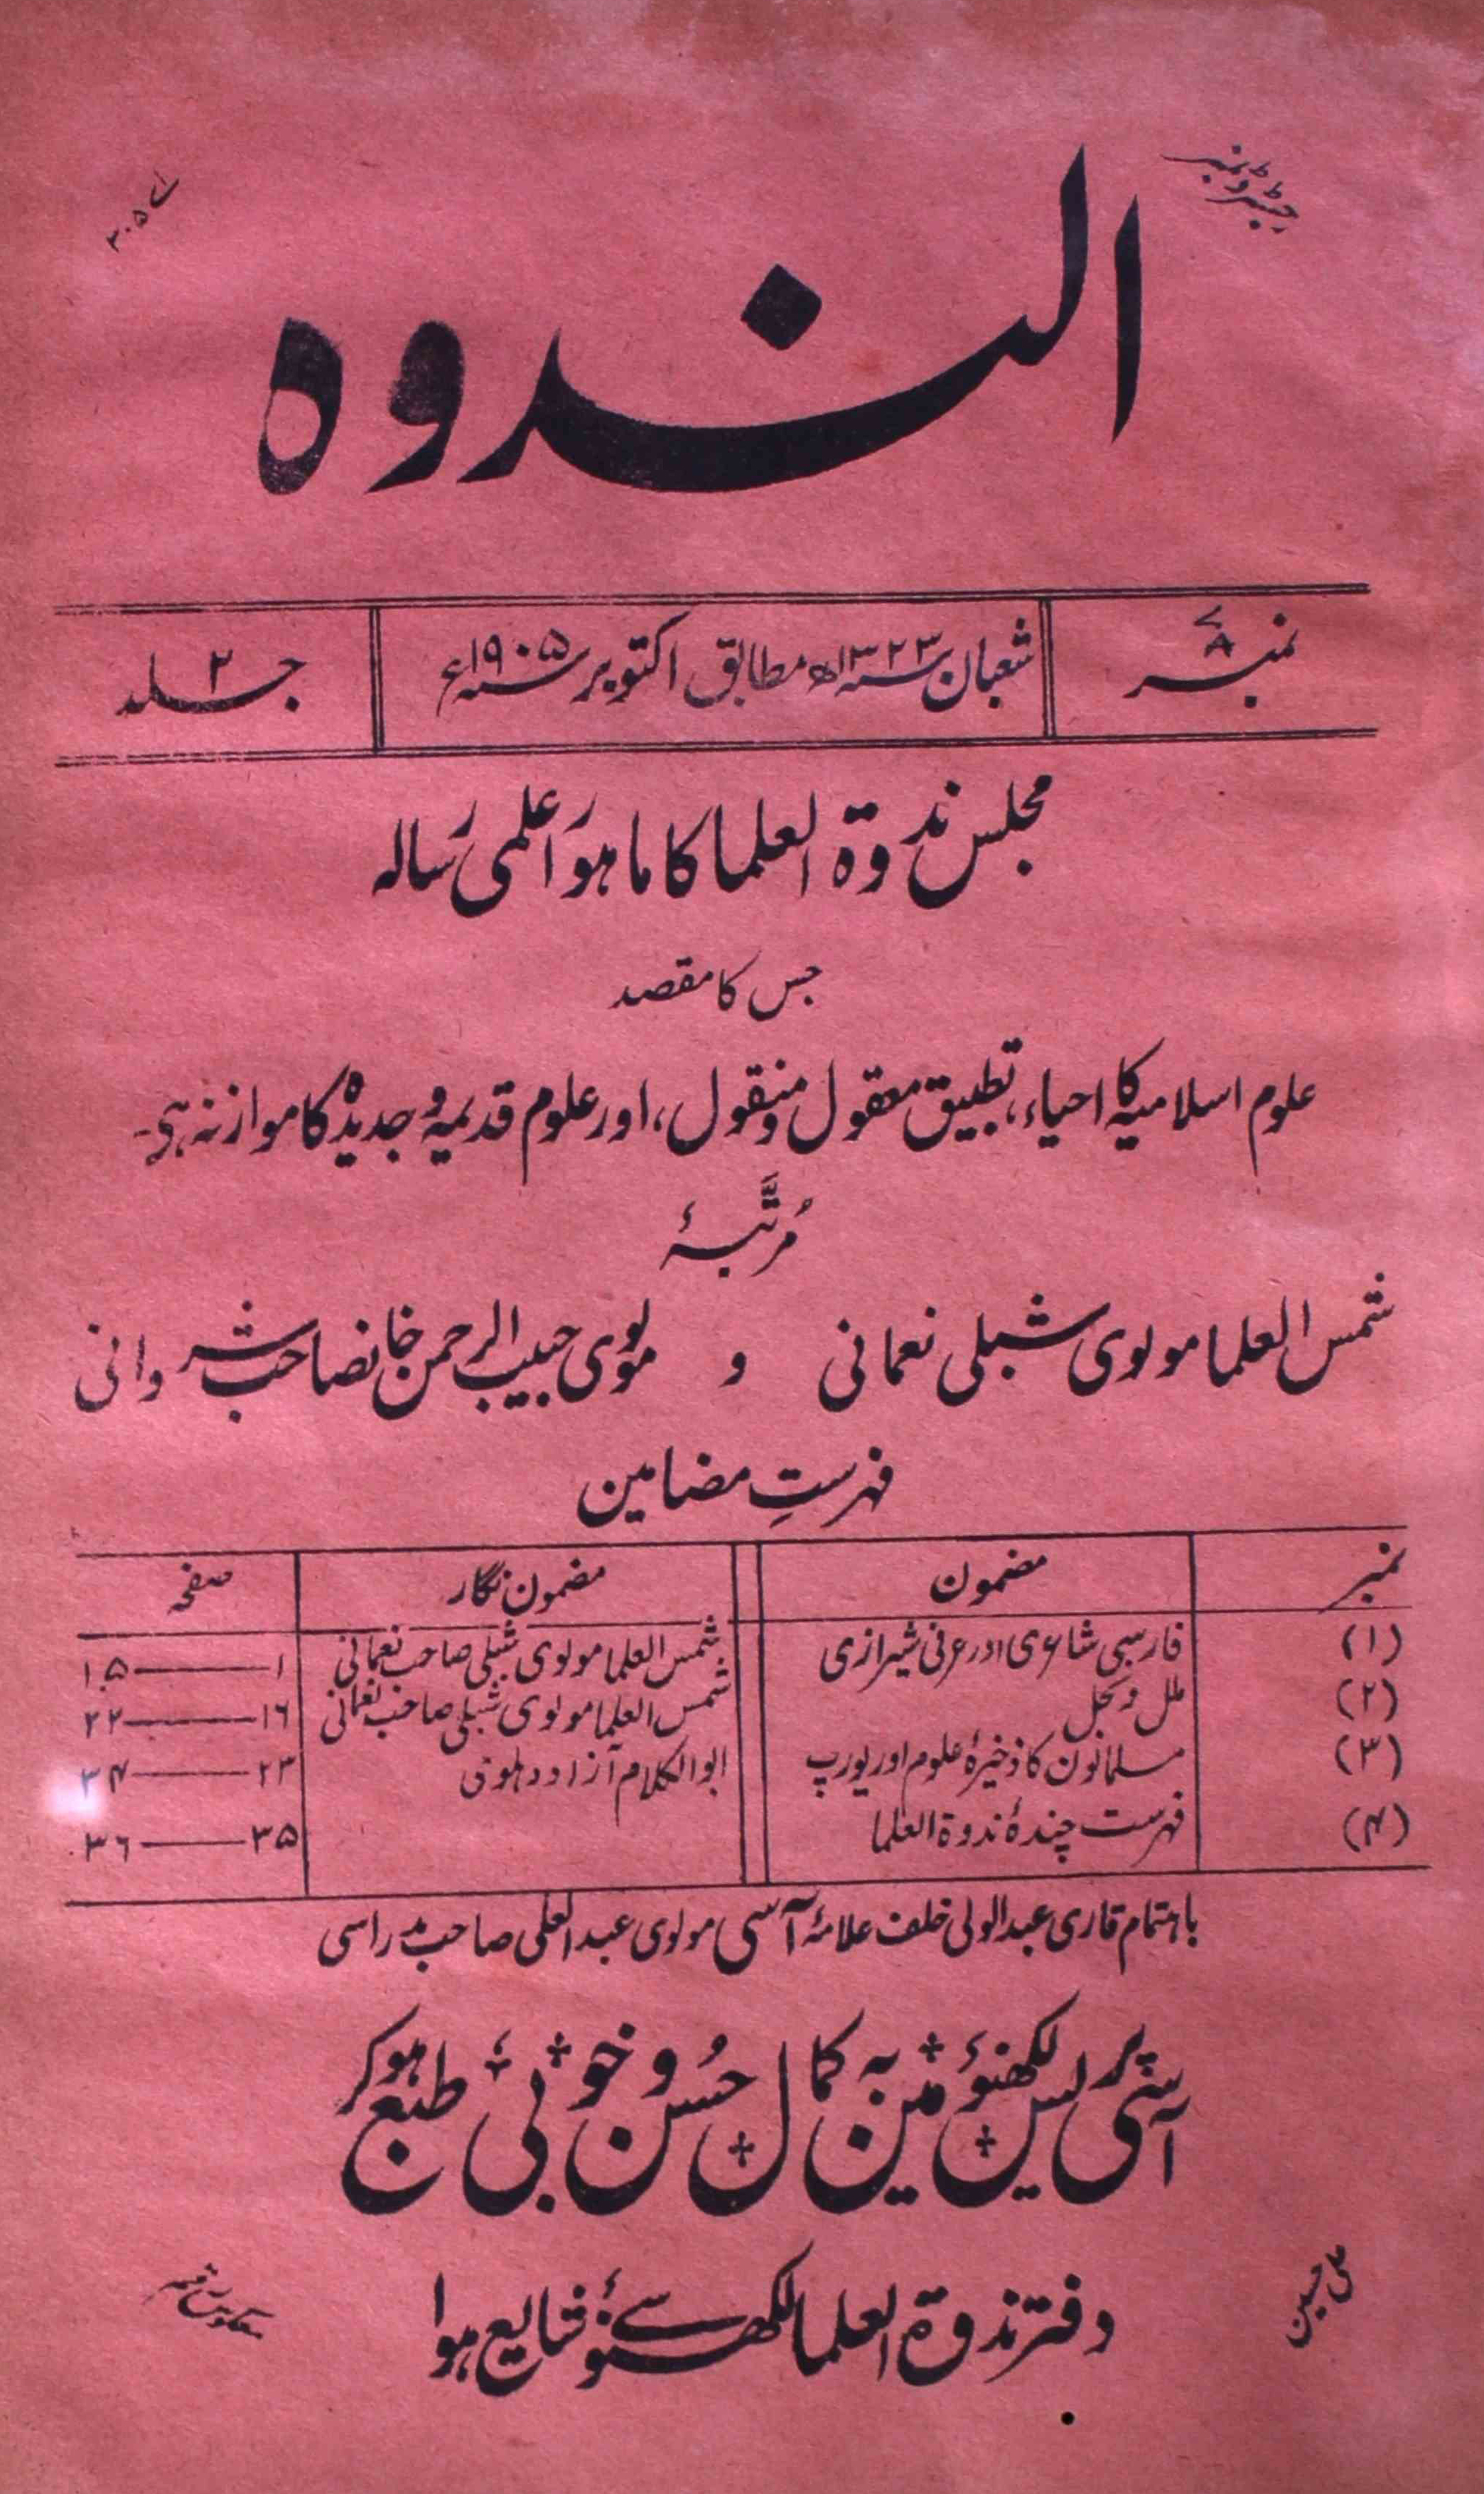 رجسٹرڈ نمبر
الندوہ
نمبر ۸ شعبان سنہ ۱۳۲۳ھ مطابق اکتوبر سنہ ۱۹۰۵ء جلد ۲
مجلس ندوۃ العلما کا ماہوار علمی رسالہ
جس کا مقصد
علوم اسلامیہ کا احیاء، تطبیق معقول و منقول، اور علوم قدیمہ و جدیدہ کا موازنہ ہی۔
مُرتَّبۂ
شمس العلما مولوی شبلی نعمانی و مولوی حبیب الرحمن خانصاحب شروانی
فہرستِ مضامین
نمبر مضمون مضمون نگار صفحہ
(۱) فارسی شاعری اور عرفی شیرازی شمس العلما مولوی شبلی صاحب نعمانی ۱ — ۱۵
(۲) ملل و نحل شمس العلما مولوی شبلی صاحب نعمانی ۱۶ — ۲۲
(۳) مسلمانون کا ذخیرۂ علوم اور یورپ ابو الکلام آزاد دہلوی ۲۳ — ۳۴
(۴) فہرست چندۂ ندوۃ العلما ۳۵ — ۳۶
باہتمام قاری عبدالولی خلف علامۂ آسی مولوی عبد العلی صاحب مدراسی
آسی پریس لکھنؤ مین بہ کمال حُسن و خوبی طبع ہوکر
دفتر ندوۃ العلما لکھنؤ سے شایع ہوا
علی حسین